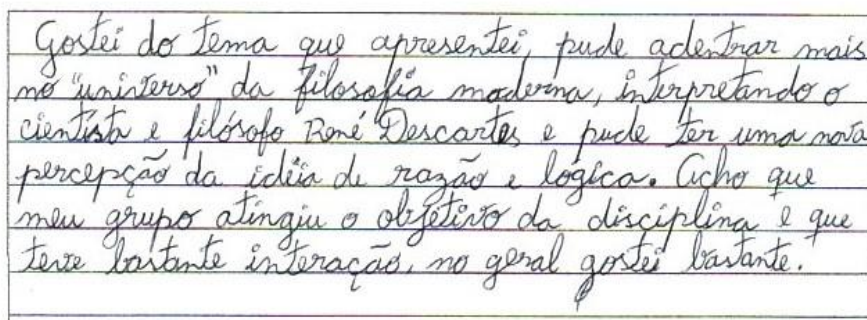 Gostei do tema que apresentei, pude adentrar mais
no "universo" da filosofia moderna, interpretando o
cientista e filósofo René Descartes e pude ter uma nova
percepção da idéia de razão e lógica. Acho que
meu grupo atingiu o objetivo da disciplina e que
teve bastante interação, no geral gostei bastante.